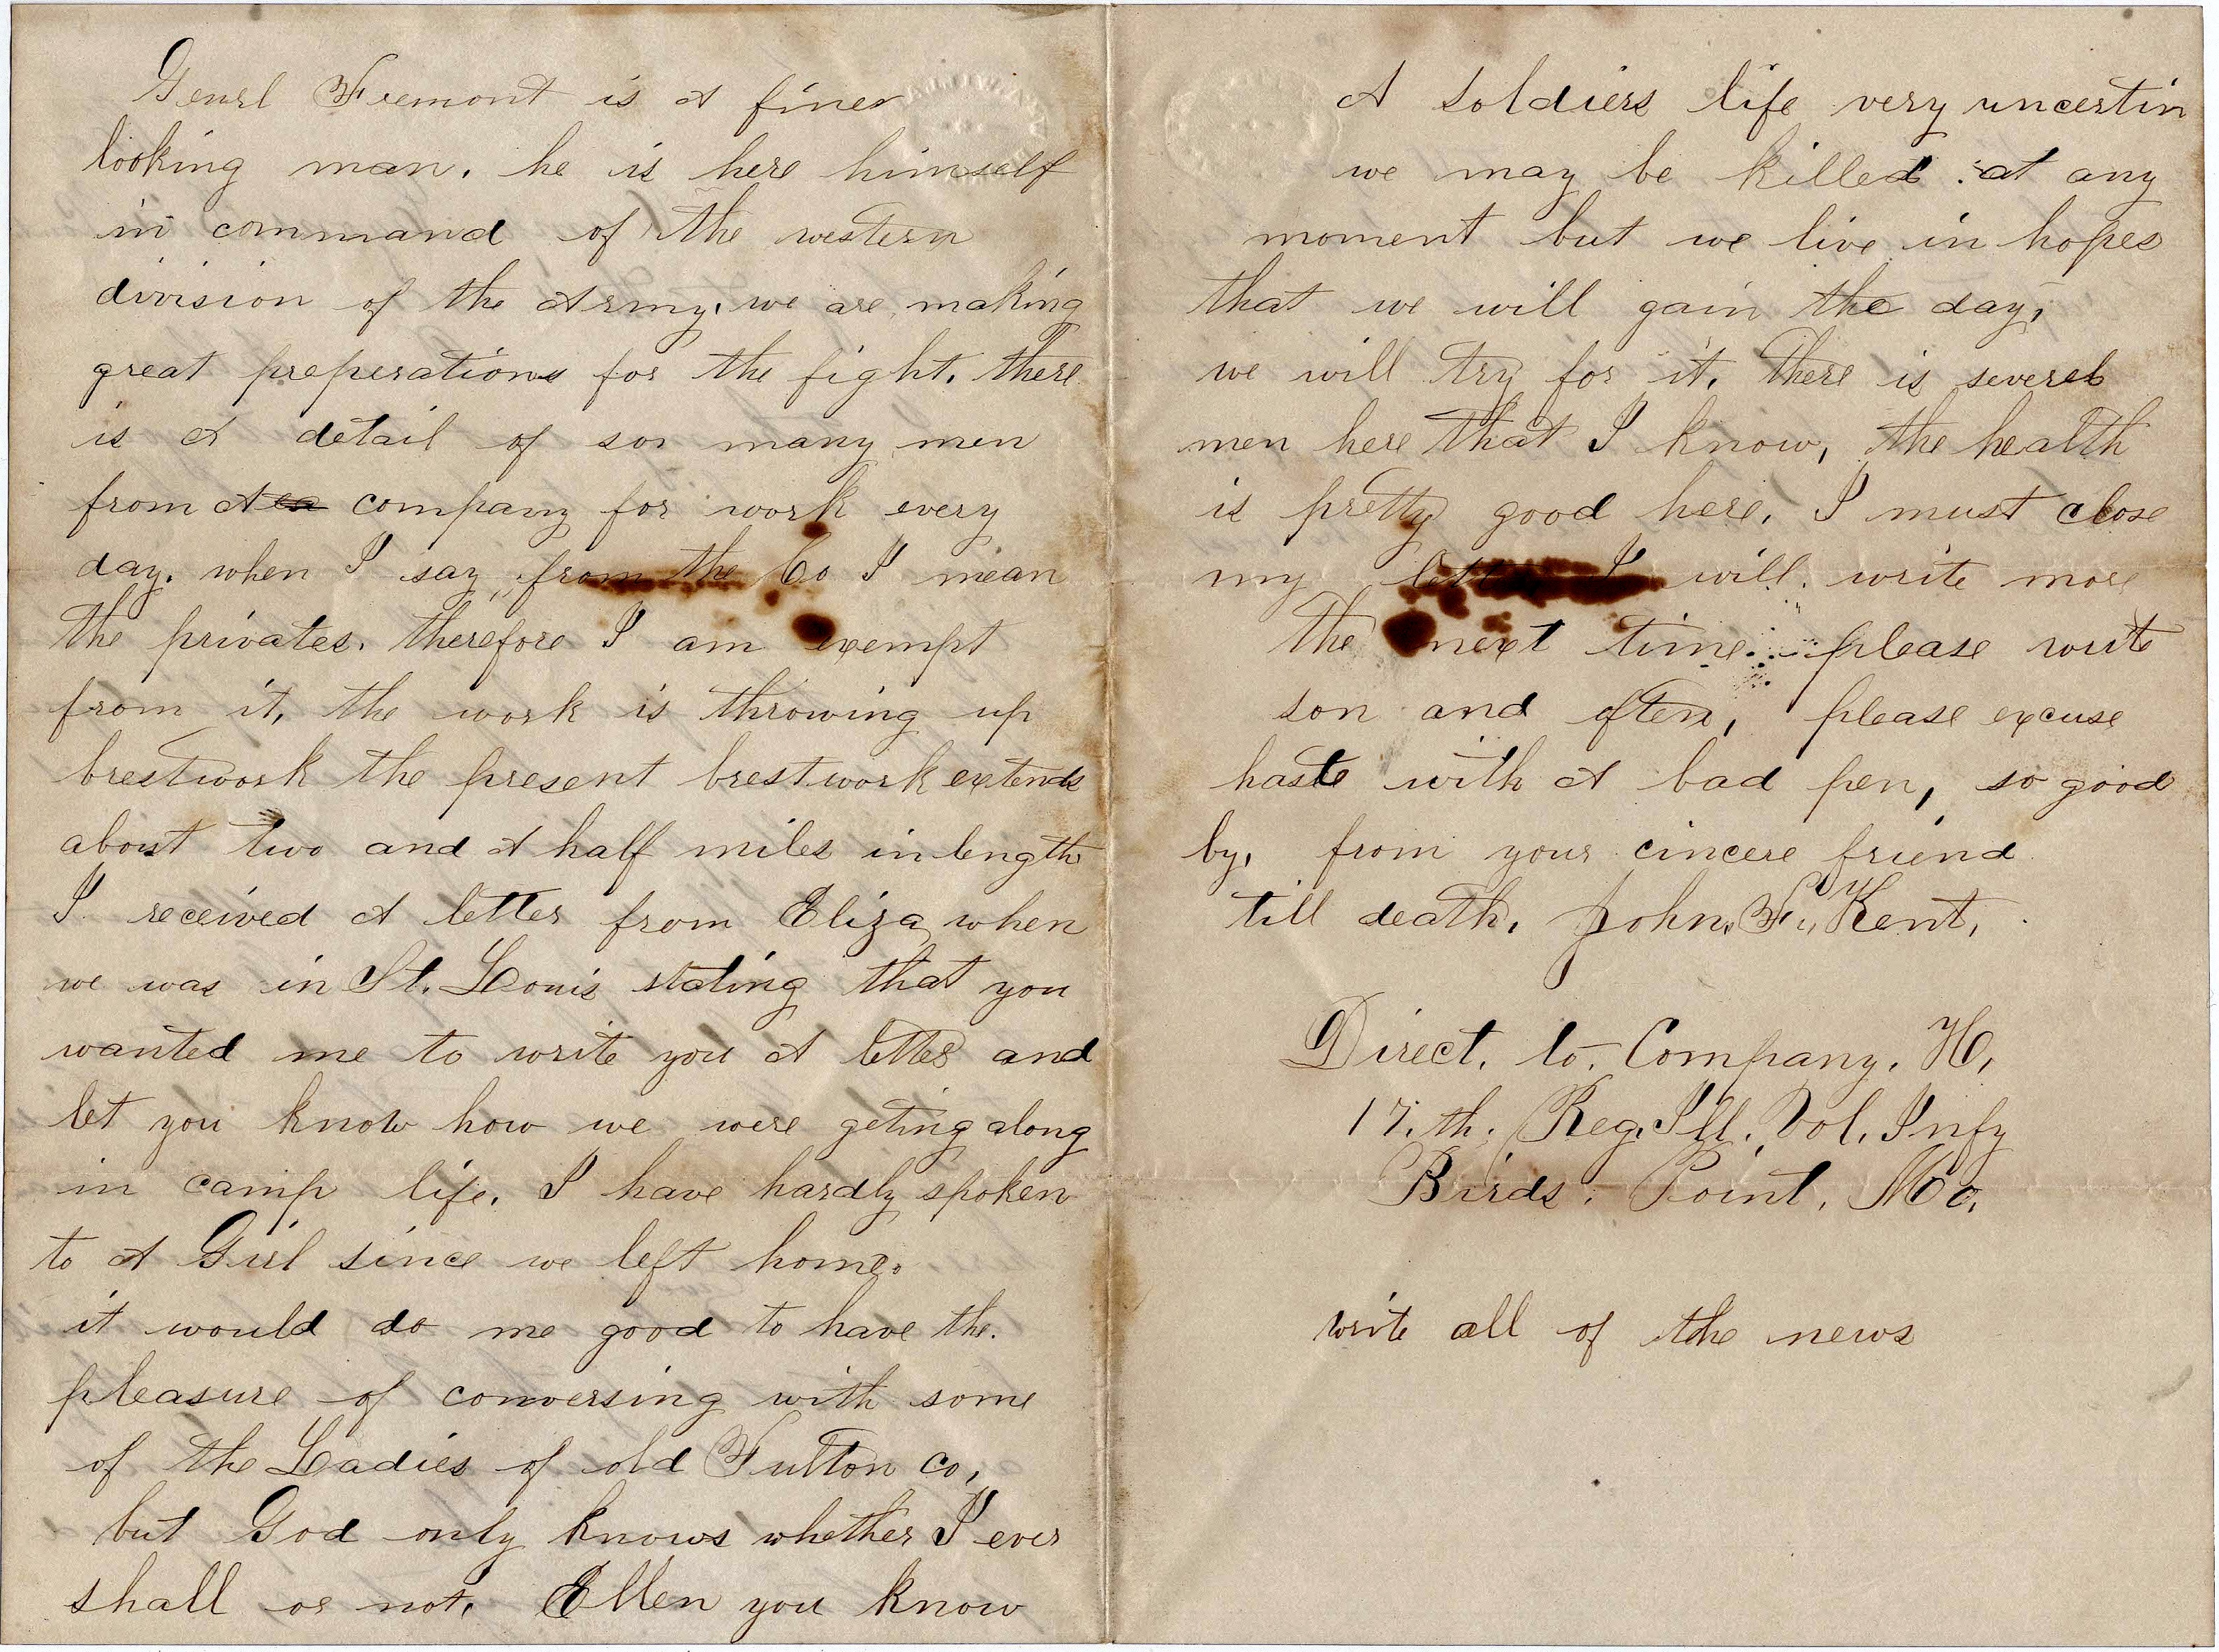 Genrl Fremont is A finer
looking man. he is here himself
in command of the western
division of the Army. we are making
great preperations for the fight. there
is A detail of son many men
from A company for work every
day. when I say from the Co I mean
the privates. therefore I am exempt
from it, the work is throwing up
brestwork the present brestwork extends
about two and A half miles in length
I received A letter from Eliza when
we was in St. Louis stating that you
wanted me to write you A letter and
let you know how we were geting along
in camp life. I have hardly spoken
to A Girl since we left home.
it would do me good to have the.
pleasure of conversing with some
of the Ladies of old Fulton co,
but God only knows whether I ever
shall or not. Ellen you know
A soldiers life very uncertin
we may be killed at any
moment but we live in hopes
that we will gain the day,
we will try for it. There is severel
men here that I know, the health
is pretty good here, I must close
my letter I will. write more
the next time. please write
son and often, please excuse
haste with A bad pen, so good
by, from your cincere friend
till death. John. F. Kent,
Direct. to. Company. H,
17. th. Reg. Ill. Vol. Infy
Birds. Point, Mo.
write all of the news